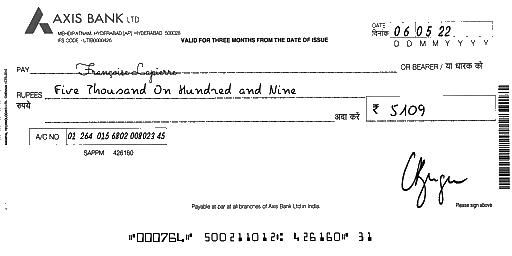 AXIS BANK LTD
MEHDIPATNAM, HYDERABAD [AP] HYDERABAD 500028
IFS CODE - UTIB0000426
VALID FOR THREE MONTHS FROM THE DATE OF ISSUE
DATE
दिनांक 06 05 22
D D M M Y Y Y Y
PAY Françoise Lapierre OR BEARER / या धारक को
RUPEES Five Thousand On Hundred and Nine
रुपये अदा करें ₹ 5109
A/C NO 01 264 015 6802 008023 45
SAPPM 426160
Payable at par at all branches of Axis Bank Ltd in India.
Please sign above
"000764" 500211012: 426160" 31